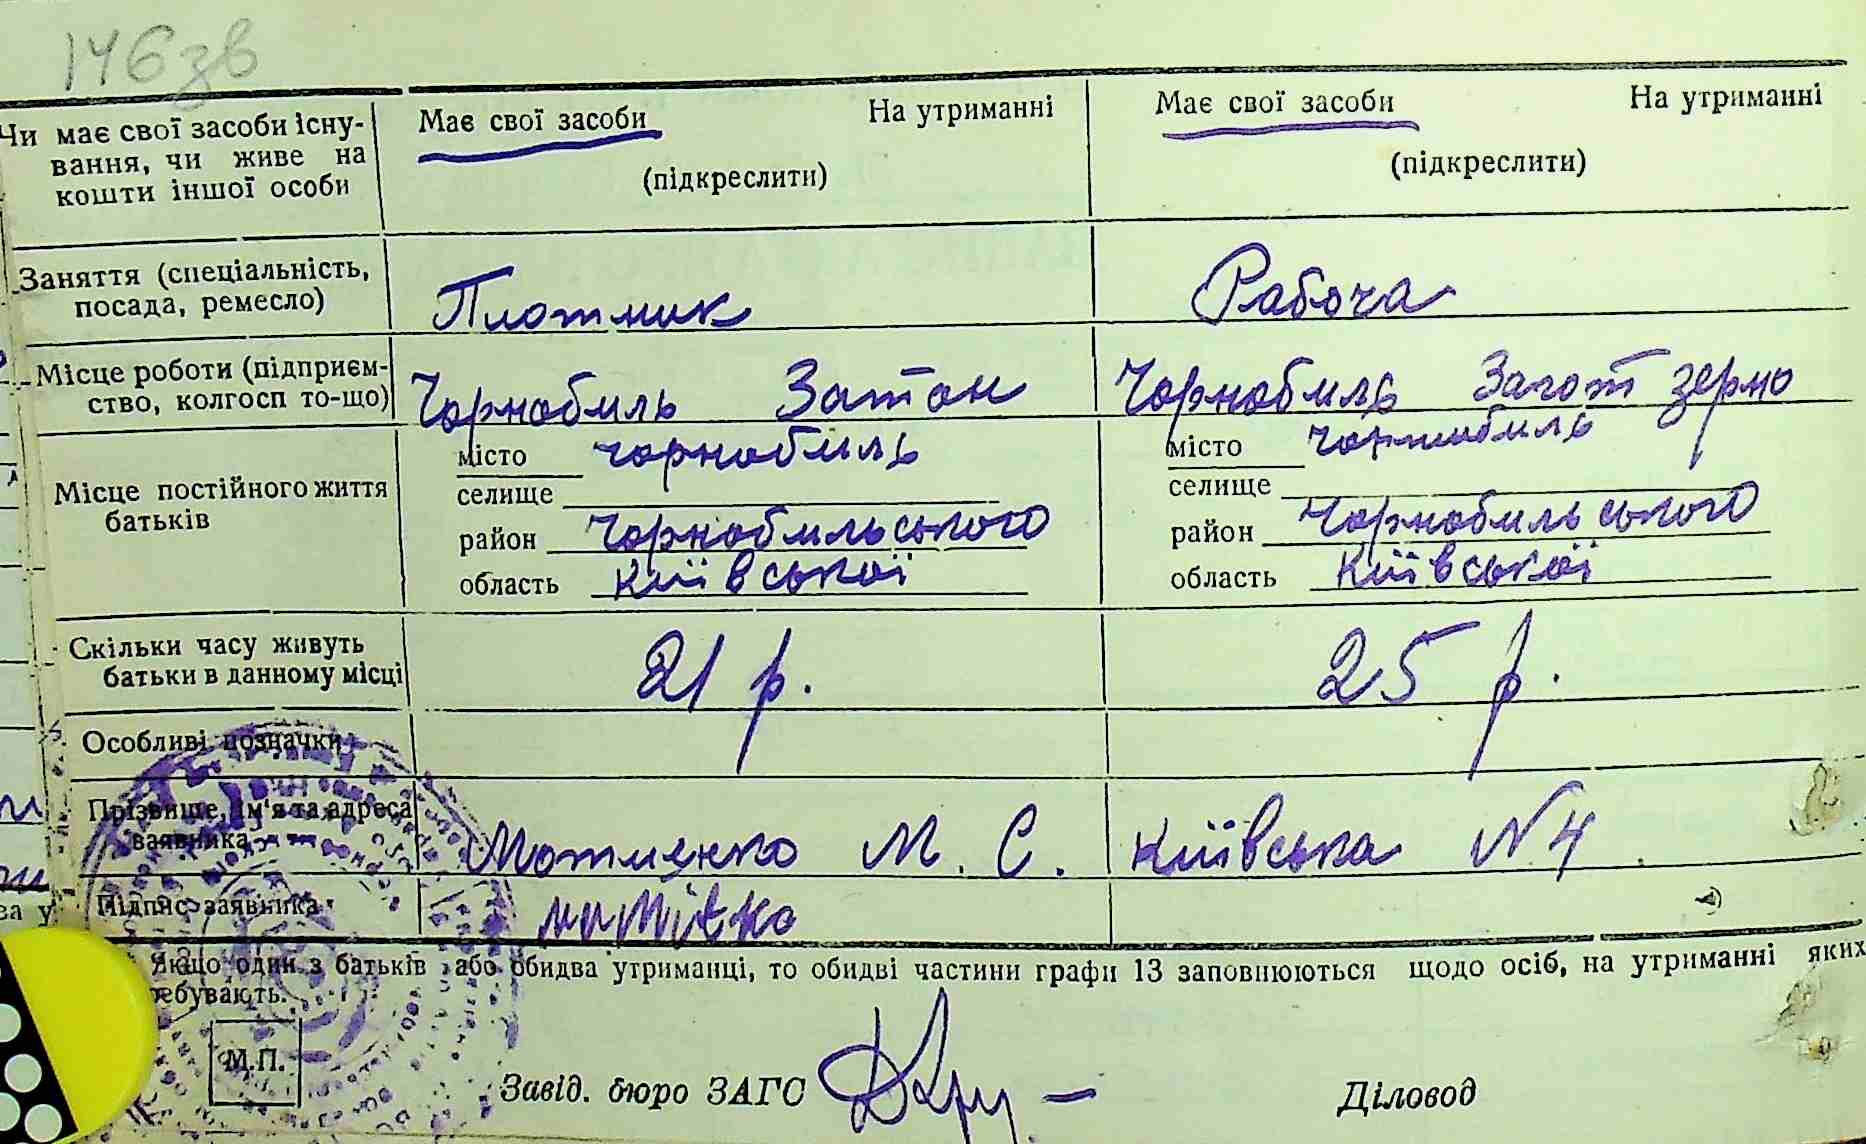 146 зв
Чи має свої засоби існу- Має свої засоби На утриманні Має свої засоби На утриманні
вання, чи живе на (підкреслити) (підкреслити)
кошти іншої особи
Заняття (спеціальність, Плотник Рабоча
посада, ремесло)
Місце роботи (підприєм- Чорнобиль Затон Чорнобиль Заготзерно
ство, колгосп то-що)
місто Чорнобиль місто Чорнобиль
Місце постійного життя селище селище
батьків район Чорнобильського район Чорнобильського
область Київської область Київської
Скільки часу живуть 21 р. 25 р.
батьки в данному місці
Особливі позначки
Прізвище, ім'я та адреса М. С. Київська N 4
заявника
Підпис заявника
Якщо один з батьків або обидва утриманці, то обидві частини графи 13 заповнюються щодо осіб, на утриманні яких
М.П.
Завід. бюро ЗАГС Діловод